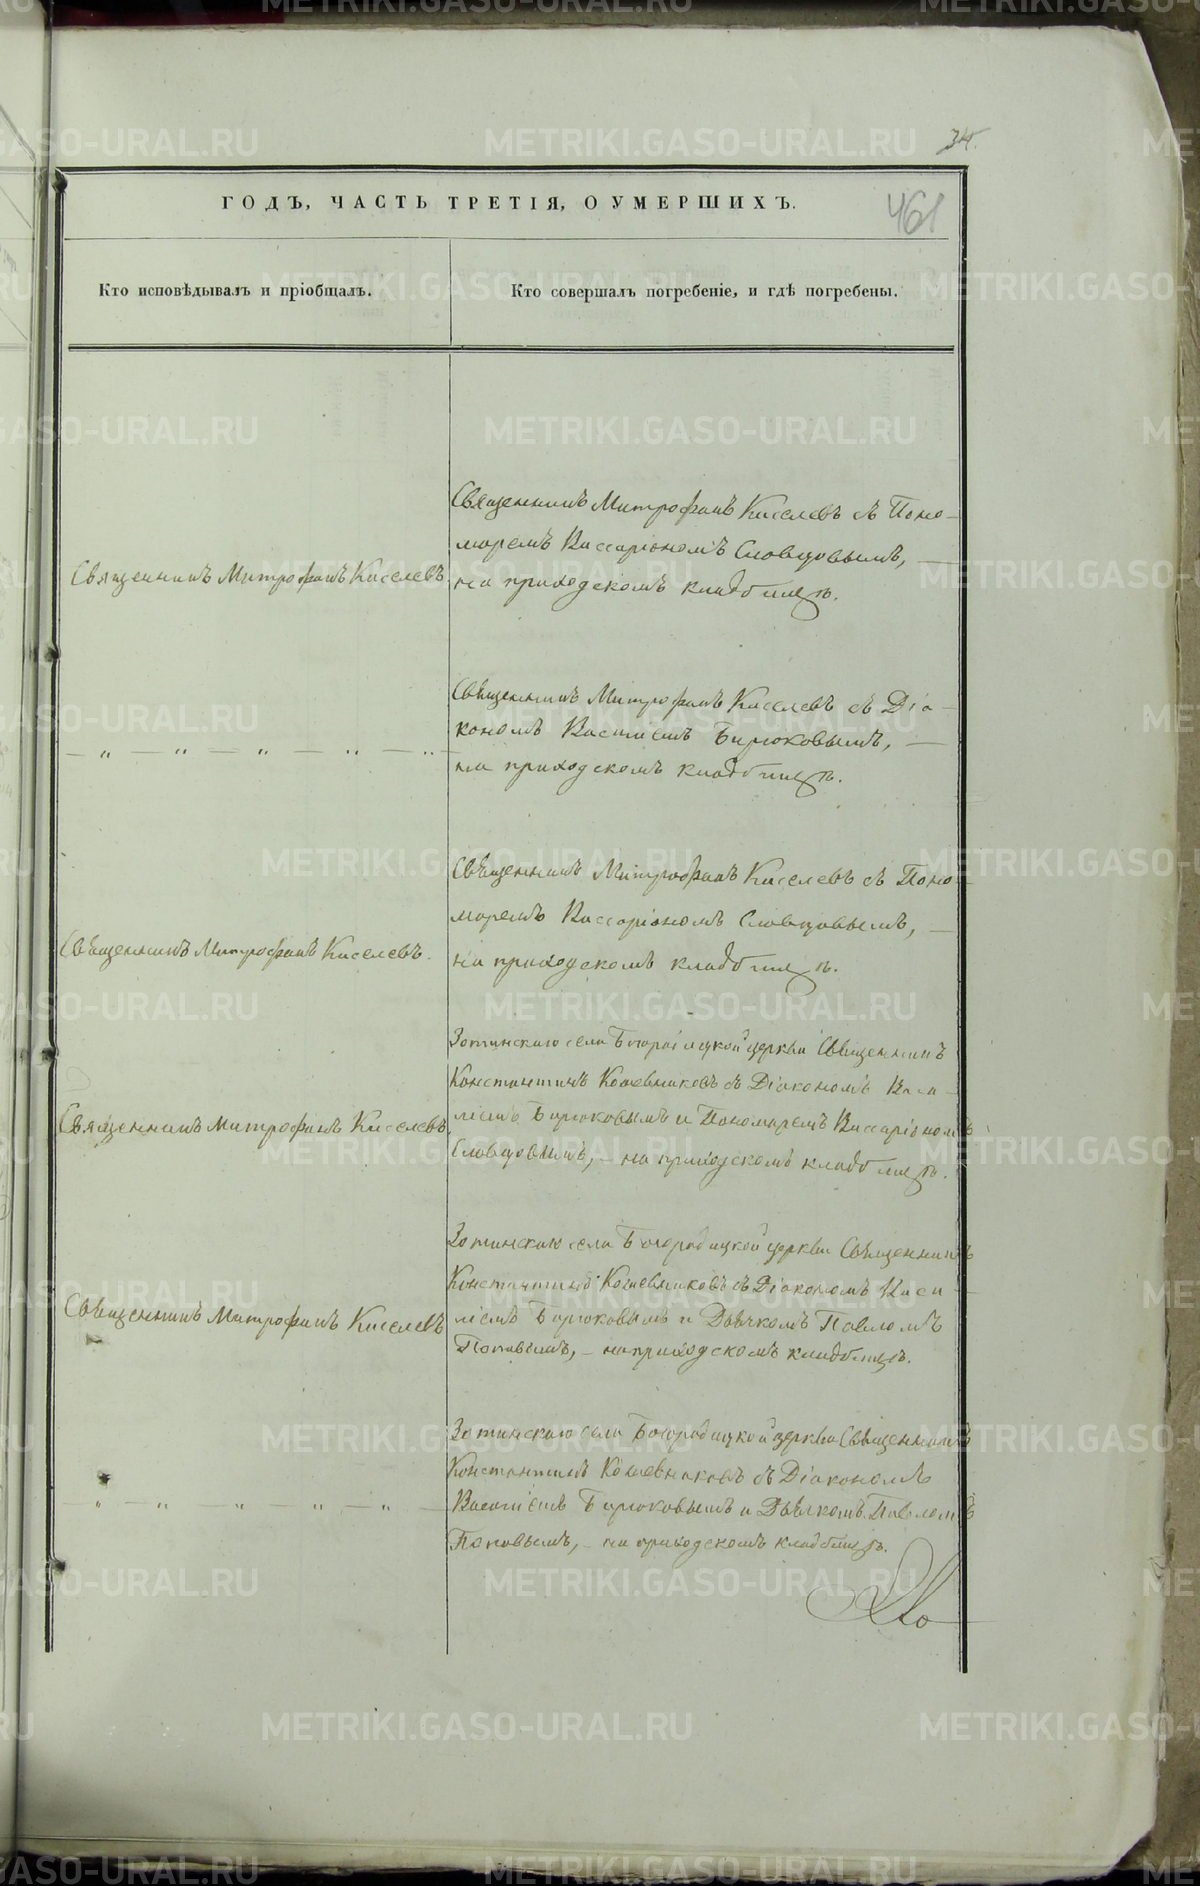 34.
ГОДЪ, ЧАСТЬ ТРЕТІЯ, О УМЕРШИХЪ.
461
Кто исповѣдывалъ и пріобщалъ.
Кто совершалъ погребеніе, и гдѣ погребены.
Священникъ Митрофанъ Киселевъ
Священникъ Митрофанъ Киселевъ съ Поно-
маремъ Виссаріономъ Словцовымъ, —
на приходскомъ кладбищѣ.
— „ — „ — „ — „ — „ —
Священникъ Митрофанъ Киселевъ съ Діа-
кономъ Василіемъ Бирюковымъ, —
на приходскомъ кладбищѣ.
Священникъ Митрофанъ Киселевъ.
Священникъ Митрофанъ Киселевъ съ Поно-
маремъ Виссаріономъ Словцовымъ, —
на приходскомъ кладбищѣ.
Священникъ Митрофанъ Киселевъ
Зотинскаго села Богородицкой церкви Священникъ
Константинъ Кожевниковъ съ Діакономъ Васи-
ліемъ Бирюковымъ и Пономаремъ Виссаріономъ
Словцовымъ, — на приходскомъ кладбищѣ.
Священникъ Митрофанъ Киселевъ
Зотинскаго села Богородицкой церкви Священникъ
Константинъ Кожевниковъ съ Діакономъ Васи-
ліемъ Бирюковымъ и Дьячкомъ Павломъ
Поповымъ, — на приходскомъ кладбищѣ.
— „ — „ — „ — „ — „ —
Зотинскаго села Богородицкой церкви Священникъ
Константинъ Кожевниковъ съ Діакономъ
Василіемъ Бирюковымъ и Дьячкомъ Павломъ
Поповымъ, — на приходскомъ кладбищѣ.
METRIKI.GASO-URAL.RU